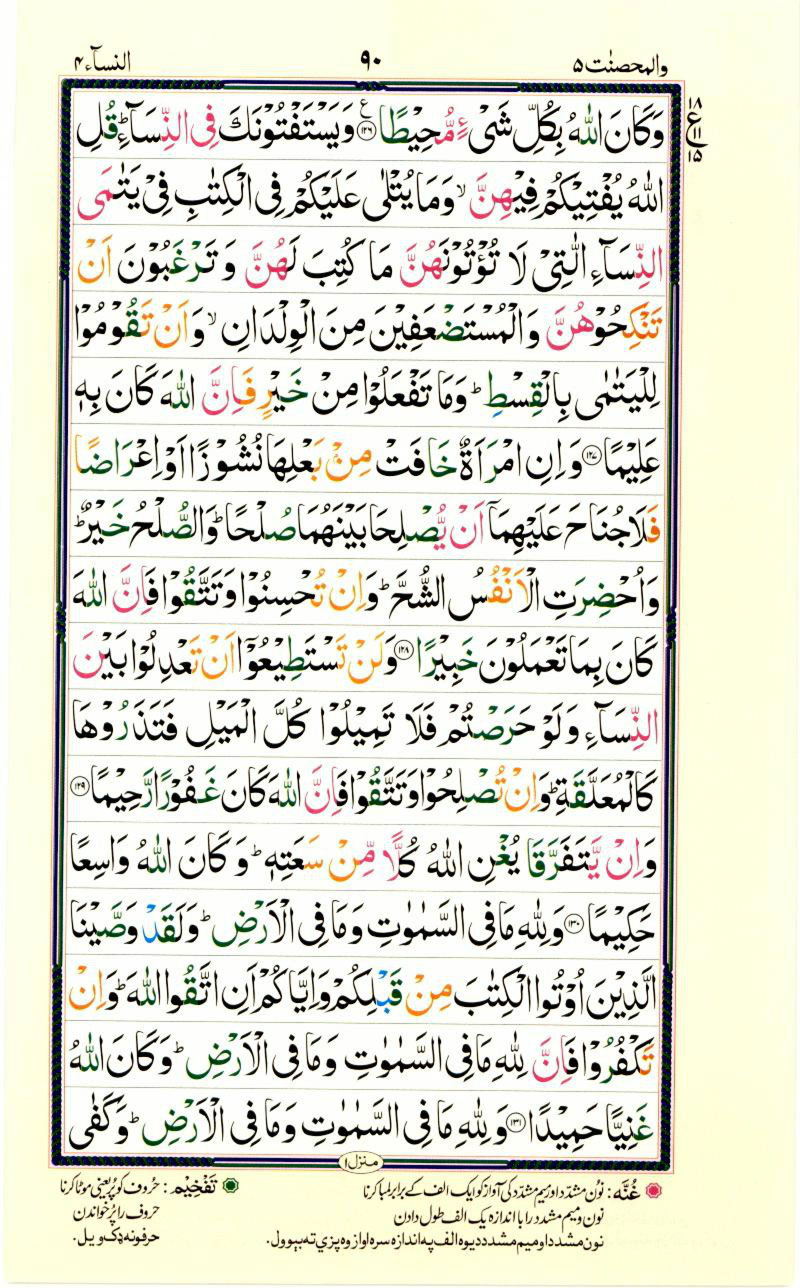 والمحصنٰت ۵ ۹۰ النسآء ۴
۱۸
ع
۱۱
۱۵
وَكَانَ اللّٰهُ بِكُلِّ شَیْءٍ مُّحِیْطًا ﴿۱۲۶﴾ ع وَیَسْتَفْتُوْنَكَ فِی النِّسَآءِ ؕ قُلِ
اللّٰهُ یُفْتِیْكُمْ فِیْهِنَّ ۙ وَمَا یُتْلٰی عَلَیْكُمْ فِی الْكِتٰبِ فِیْ یَتٰمَی
النِّسَآءِ الّٰتِیْ لَا تُؤْتُوْنَهُنَّ مَا كُتِبَ لَهُنَّ وَتَرْغَبُوْنَ اَنْ
تَنْكِحُوْهُنَّ وَالْمُسْتَضْعَفِیْنَ مِنَ الْوِلْدَانِ ۙ وَاَنْ تَقُوْمُوْا
لِلْیَتٰمٰی بِالْقِسْطِ ؕ وَمَا تَفْعَلُوْا مِنْ خَیْرٍ فَاِنَّ اللّٰهَ كَانَ بِهٖ
عَلِیْمًا ﴿۱۲۷﴾ وَاِنِ امْرَاَةٌ خَافَتْ مِنْۢ بَعْلِهَا نُشُوْزًا اَوْ اِعْرَاضًا
فَلَا جُنَاحَ عَلَیْهِمَاۤ اَنْ یُّصْلِحَا بَیْنَهُمَا صُلْحًا ؕ وَالصُّلْحُ خَیْرٌ ؕ
وَاُحْضِرَتِ الْاَنْفُسُ الشُّحَّ ؕ وَاِنْ تُحْسِنُوْا وَتَتَّقُوْا فَاِنَّ اللّٰهَ
كَانَ بِمَا تَعْمَلُوْنَ خَبِیْرًا ﴿۱۲۸﴾ وَلَنْ تَسْتَطِیْعُوْۤا اَنْ تَعْدِلُوْا بَیْنَ
النِّسَآءِ وَلَوْ حَرَصْتُمْ فَلَا تَمِیْلُوْا كُلَّ الْمَیْلِ فَتَذَرُوْهَا
كَالْمُعَلَّقَةِ ؕ وَاِنْ تُصْلِحُوْا وَتَتَّقُوْا فَاِنَّ اللّٰهَ كَانَ غَفُوْرًا رَّحِیْمًا ﴿۱۲۹﴾
وَاِنْ یَّتَفَرَّقَا یُغْنِ اللّٰهُ كُلًّا مِّنْ سَعَتِهٖ ؕ وَكَانَ اللّٰهُ وَاسِعًا
حَكِیْمًا ﴿۱۳۰﴾ وَلِلّٰهِ مَا فِی السَّمٰوٰتِ وَمَا فِی الْاَرْضِ ؕ وَلَقَدْ وَصَّیْنَا
الَّذِیْنَ اُوْتُوا الْكِتٰبَ مِنْ قَبْلِكُمْ وَاِیَّاكُمْ اَنِ اتَّقُوا اللّٰهَ ؕ وَاِنْ
تَكْفُرُوْا فَاِنَّ لِلّٰهِ مَا فِی السَّمٰوٰتِ وَمَا فِی الْاَرْضِ ؕ وَكَانَ اللّٰهُ
غَنِیًّا حَمِیْدًا ﴿۱۳۱﴾ وَلِلّٰهِ مَا فِی السَّمٰوٰتِ وَمَا فِی الْاَرْضِ ؕ وَكَفٰی
منزل۱
غُنَّه: نون مشدد اور میم مشدد کی آواز کو ایک الف کے برابر لمبا کرنا تَفْخِیْم: حُروف کو پُر یعنی موٹا کرنا
نون و میم مشدد را با اندازه یک الف طول دادن حروف را پُر خواندن
نون مشدد او میم مشدد د یوه الف په اندازه سره اواز وه پزې ته بېوول. حرفونه ډک ویل.